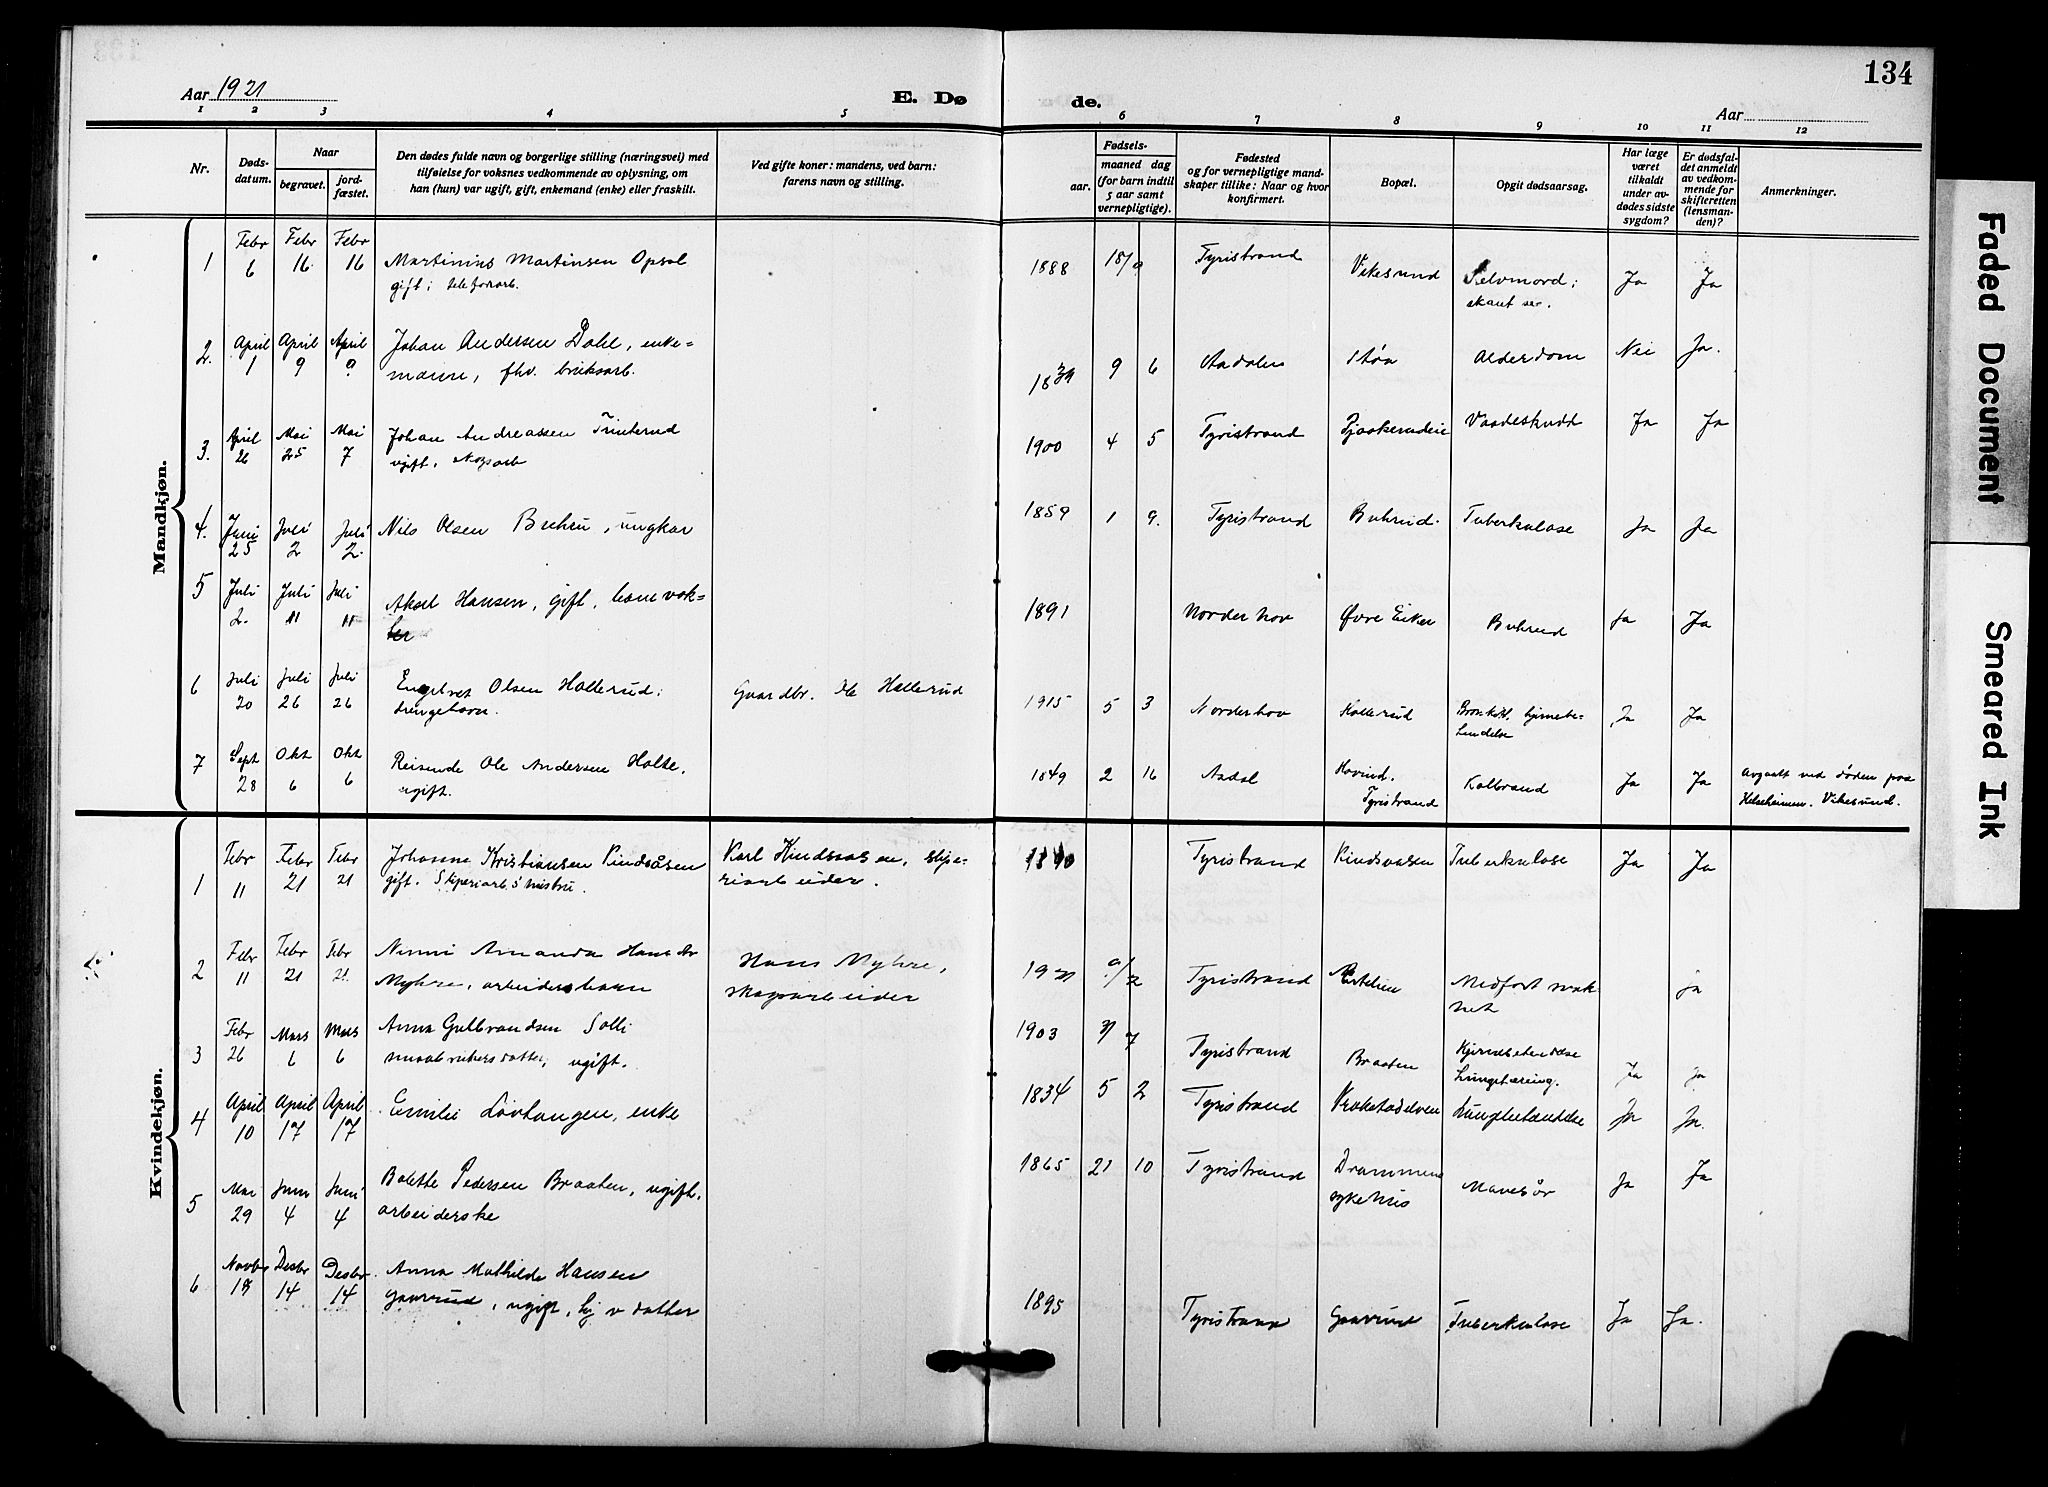 134
Aar 1921
E. Døde.
Aar
1 2 3 4 5 6 7 8 9 10 11 12
Nr.
Døds-
datum.
Naar
begravet.
jord-
fæstet.
Den dødes fulde navn og borgerlige stilling (næringsvei) med
tilføielse for voksnes vedkommende av oplysning, om
han (hun) var ugift, gift, enkemand (enke) eller fraskilt.
Ved gifte koner: mandens, ved barn:
farens navn og stilling.
Fødsels-
aar.
maaned dag
(for barn indtil
5 aar samt
vernepligtige).
Fødested
og for vernepligtige mand-
skaper tillike: Naar og hvor
konfirmert.
Bopæl.
Opgit dødsaarsag.
Har læge
været
tilkaldt
under av-
dødes sidste
sygdom?
Er dødsfal-
det anmeldt
av vedkom-
mende for
skifteretten
(lensman-
den)?
Anmerkninger.
Mandkjøn.
1 Febr 6 Febr 16 Febr 16 Martinius Martinsen Opsal 1888 18/9 Tyristrand Vikesund Selvmord; Ja Ja
gift; telefonarb. skaut ser.
2. April 1 April 9 April 9 Johan Andersen Dahl, enke= 9 6 Aadalen Støa Alderdom Nei Ja.
mann, fhv. bruksarb.
3. April 26 Mai 25 Mai 7 Johan Andreassen Trinterud 1900 4 5 Tyristrand Vaadeskudd Ja Ja
ugift, skogsarb
4. Juni 25 Juli 2 Juli 2. Nils Olsen Buhru, ungkar 1859 1 9. Tyristrand Buhrud. Tuberkulose Ja Ja
5 Juli 2. Juli 11 Juli 11 Aksel Hansen, gift, banevok= 1891 Norderhov Øvre Eiker Buhrud Ja Ja
ter
6 Juli 20 Juli 26 Juli 26 Engebret Olsen Hollerud; Gaardbr. Ole Hollerud 1915 5 3 Norderhov Hollerud hjernebe= Ja Ja
drengebarn. tendelse
7 Sept 28 Okt 6 Okt 6 Reisende Ole Andersen Holte, 1849 2 16 Aadal Hovind. Koldbrand Ja Ja Avgaatt ved døden paa
ugift. Tyristrand Helseheimen. Vikesund.
Kvindekjøn.
1 Febr 11 Febr 21 Febr 21 Johanne Kristiansen Kindsåsen Karl Kindsaasen, slipe= Tyristrand Kindsaasen Tuberkulose Ja Ja
gift. Sliperiarb.s hustru. riarbeider.
2 Febr 11 Febr 21 Febr 21. Ninni Amanda Hansdtr Hans Myhre, 1921 9/2 Tyristrand Medfort svak- ja
Myhre, arbeidersbarn skogsarbeider het
3 Febr 26 Mars 6 Mars 6 Anna Gulbrandsen Solli 1903 7 Tyristrand Braaten Hjernebetendelse Ja ja
smaabrukers datter, ugift. Lungetæring.
4 April 10 April 17 April 17 Emilie Lövhaugen, enke 1834 5 2 Tyristrand Vrakstadelven Lungebetendelse Ja Ja.
5 Mai 29 Juni 4 Juni 4 Bolette Pedersen Braaten, ugift, 1865 21 10 Tyristrand Drammens Mavesår Ja Ja
arbeiderske sykehus
6 Novbr Desbr 14 Desbr. 14 Anna Mathilde Hansen 1895 Tyristrand Gaarud Tuberkulose Ja Ja.
Gaarud, ugift, hj v datter
Faded Document
Smeared Ink